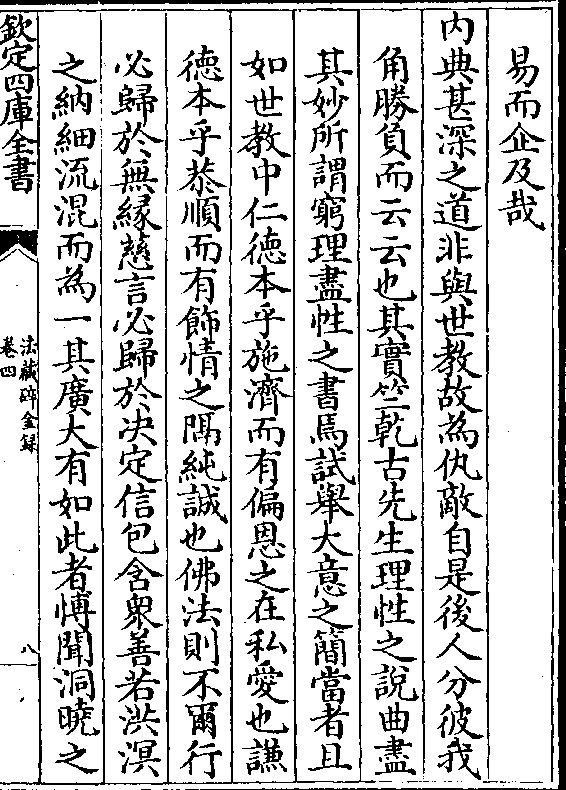 易而企及哉
内典甚深之道非與世教故為仇敵自是後人分彼我
角勝負而云云也其實竺乾古先生理性之說曲盡
其妙所謂窮理盡性之書焉試舉大意之簡當者且
如世教中仁德本乎施濟而有偏恩之在私愛也謙
德本乎恭順而有飾情之隔純誠也佛法則不爾行
必歸於無緣慈言必歸於决定信包含衆善若洪溟
之納細流混而為一其廣大有如此者愽聞洞曉之
欽定四庫全書
法藏碎金録
卷四
八